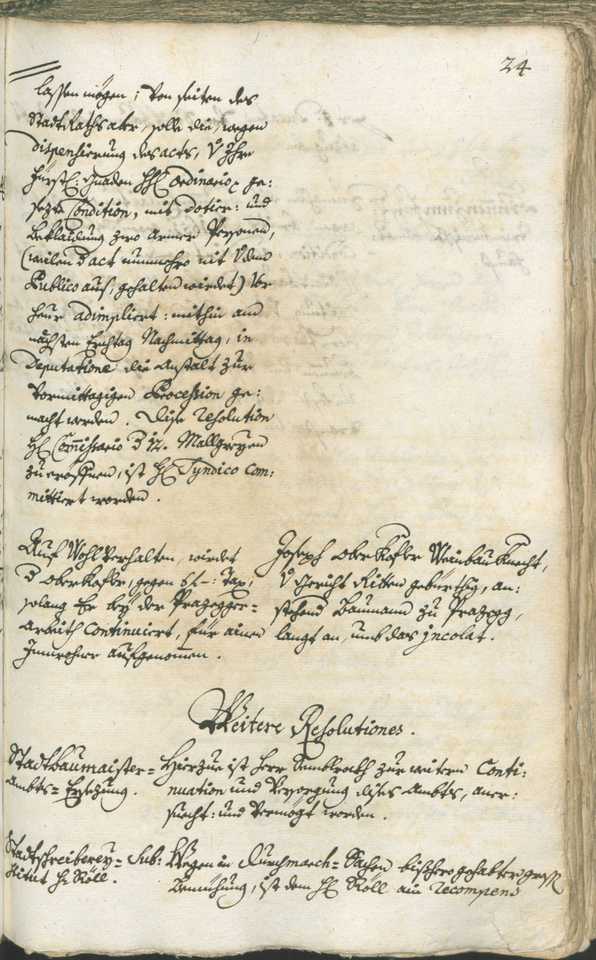 24
lassen mögen; Von seiten des
StadtRaths aber, solle die, wegen
dispensierung des acts, V Ihro
Fürstl: Gnaden HL Ordinario, ge:
sezte Condition, mit Dotier: und
Beklaidung zwo Armer Personen,
(weilen d act nunmehro nit V dem
Publico auß, gehalten wirdet) Vor
heur adimpliert: mithin am
nächsten Erchtag Nachmittag, in
Deputatione die Anstalt zur
Vormittagigen Procession ge:
macht werden. Dise Resolution
HL Commissario d Mallgreyen
zu eröffnen, ist HL Syndico com:
mittiert worden.
Auf Wohlverhalten, wirdet
d Oberkofler, gegen Tax,
solang Er bey der Prazegger=
Arbeith Continuiert, für ainen
Innwohner aufgenommen.
Joseph Oberkofler Weinbau Knecht,
V Gericht Ritten gebürthig, an:
stehend Baumann zu Prazegg,
langt an, umb das jncolat.
Weitere Resolutiones.
Stadtbaumaister=
Ambts= Ersezung.
Hierzue ist Herr zur weitern Conti:
nuation und Versorgung dises Ambts, aner:
sucht: und vermögt worden.
Stadtschreiberey= Sub:
stitut H: Röll.
Wegen in Durchmarch= Sachen bishero gehabter
Bemühung, ist dem HL Röll ain Recompens